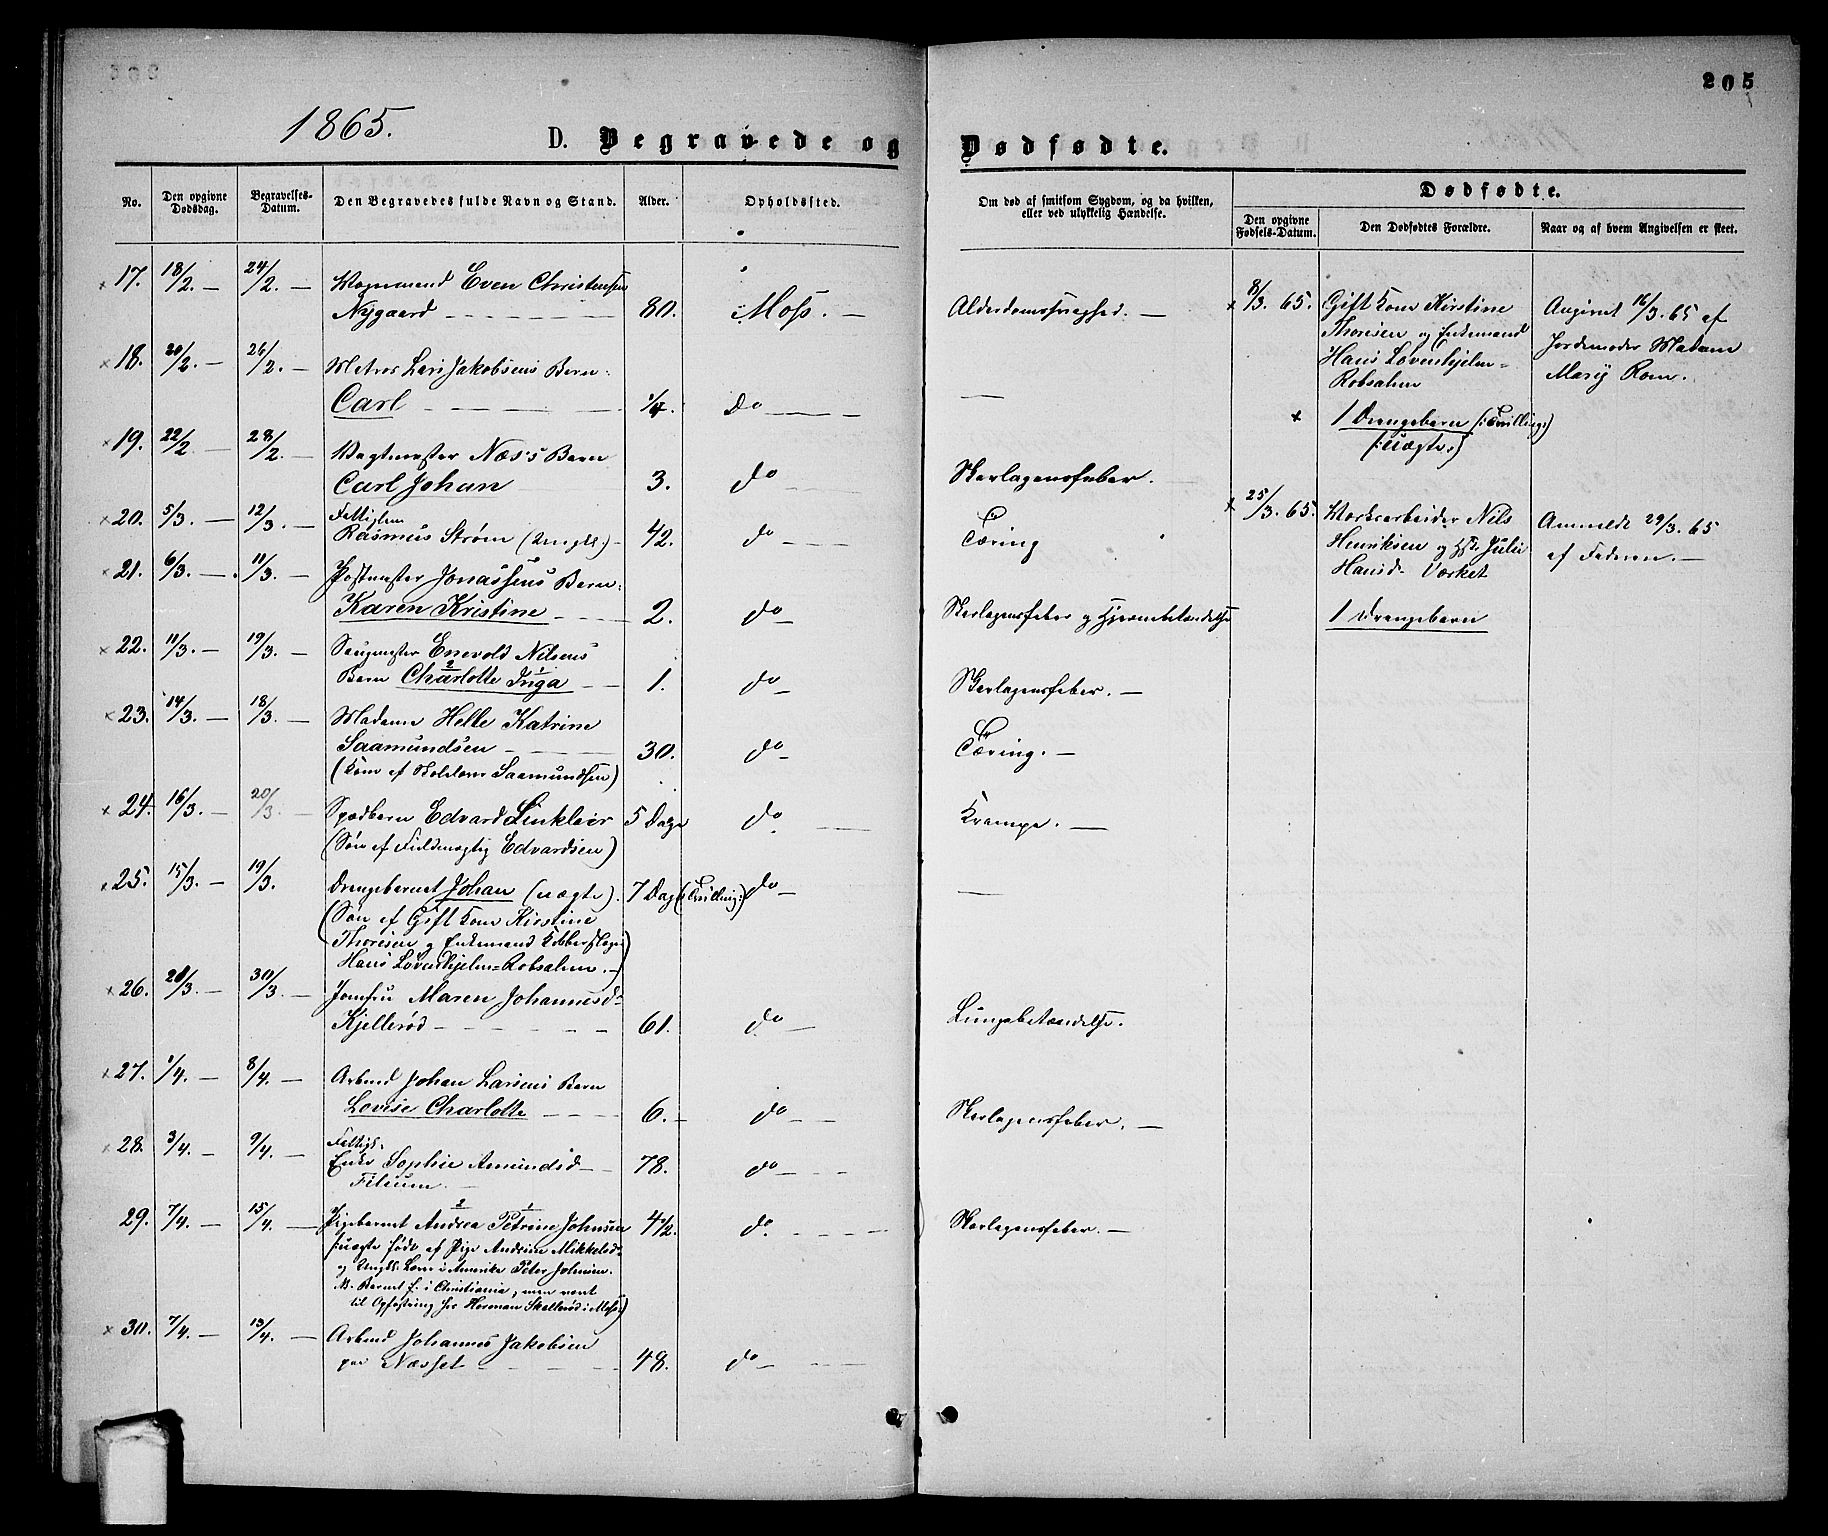 205
1865.
D. Begravede og Dødfødte.
No.
Den opgivne Dødsdag.
Begravelses-Datum.
Den Begravedes fulde Navn og Stand.
Alder.
Opholdssted.
Om død af smitsom Sygdom, og da hvilken,
eller ved ulykkelig Hændelse.
Dødfødte.
Den opgivne Fødsels-Datum.
Den Dødfødtes Forældre.
Naar og af hvem Angivelsen er skeet.
17. 18/2. — 24/2. — Vognmand Even Christensen
Nygaard — 80. Moss. — Alderdomssvaghed. —
18. 20/2. — 26/2. — Matros Lars Jakobsens Barn
Carl — 1/4. do — —
19. 22/2. — 28/2. — Vagtmester Næss's Barn
Carl Johan 3. do — Skarlagensfeber.
20. 5/3. — 12/3. — Fattiglem
Rasmus Strøm (Ungk.) — 42. do — Tæring
21. 6/3. — 11/3. — Postmester Jonassens Barn
Karen Kristine — 2. do Skarlagensfeber og Hjernebetændelse
22. 11/3. — 19/3. — Saugmester Enevold Nilsens
Barn Charlotte Inga — 1. do — Skarlagensfeber. —
23. 14/3. — 18/3. — Madame Helle Katrine
Saamundsen — 30. do — Tæring. —
(Kone af Skolelærer Saamundsen)
24. 16/3. — 20/3. — Spædbarn Edvard Sinklair 5 Dage do — Krampe. —
(Søn af Fuldmægtig Edvardsen)
25. 15/3. — 19/3. Drengebarnet Johan (uægte). 7 Dage (Tvilling) do — —
(Søn af Gift Kone Kirstine
Thoresen og Enkemand Kobberslager
Hans Løvenhjelm=Robsahm. —)
26. 20/3. — 30/3. — Jomfru Maren Johannesd.
Kjellerød — 61. do — Lungebetændelse.
27. 1/4. — 8/4. — Arbmd Johan Larsens Barn
Lovise Charlotte — 6. — do — Skarlagensfeber. —
28. 3/4. — 9/4. — Fattigl.
Enke Sophie Amundsd — 78. do —
29. 7/4. — 15/4. — Pigebarnet Andrea Petrine Johnsen 4 1/2. do. — Skarlagensfeber. —
(:uægte født af Pige Andrine Mikkelsd.
og Ungk. i Amerika Peter Johnsen.
NB. Barnet f. i Christiania, men sendt
til Opfostring hos Herman Skallerød i Moss:)
30. 7/4. — 13/4. — Arbmd Johannes Jakobsen
paa Næsset — 48. do —
8/3. 65. Gift Kone Kirstine
Thoresen og Enkemand
Hans Løvenhjelm=
Robsahm
1 Drengebarn (:Tvilling:)
(:uægte:)
Angivet 16/3. 65 af
Jordemoder Madam
Mary Rom.
25/3. 65. Værksarbeider Nils
Henriksen og Hst. Julie
Hansd. Værket
1 Drengebarn
Anmeldt 29/3. 65
af Faderen. —